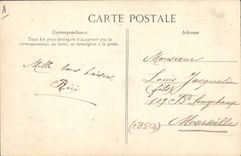 A
CARTE POSTALE
Correspondance
Adresse
Tous les pays étrangers n'acceptent pas la
correspondance au recto, se renseigner à la poste.
Mille bons baisers
Monsieur
Louis Jacquelin
fils
107 Bd Longchamp
Marseille